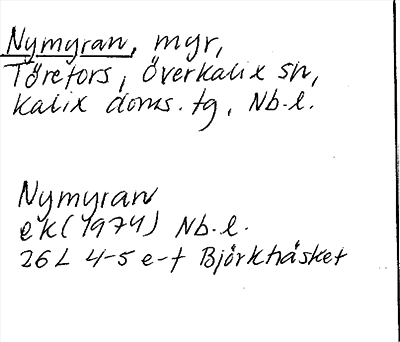 Nymyran, myr,
Törefors, Överkalix sn,
Kalix doms. tg, Nb. l.
Nymyran
ek (1974) Nb. l.
26L 4-5 e-f Björkhåsket